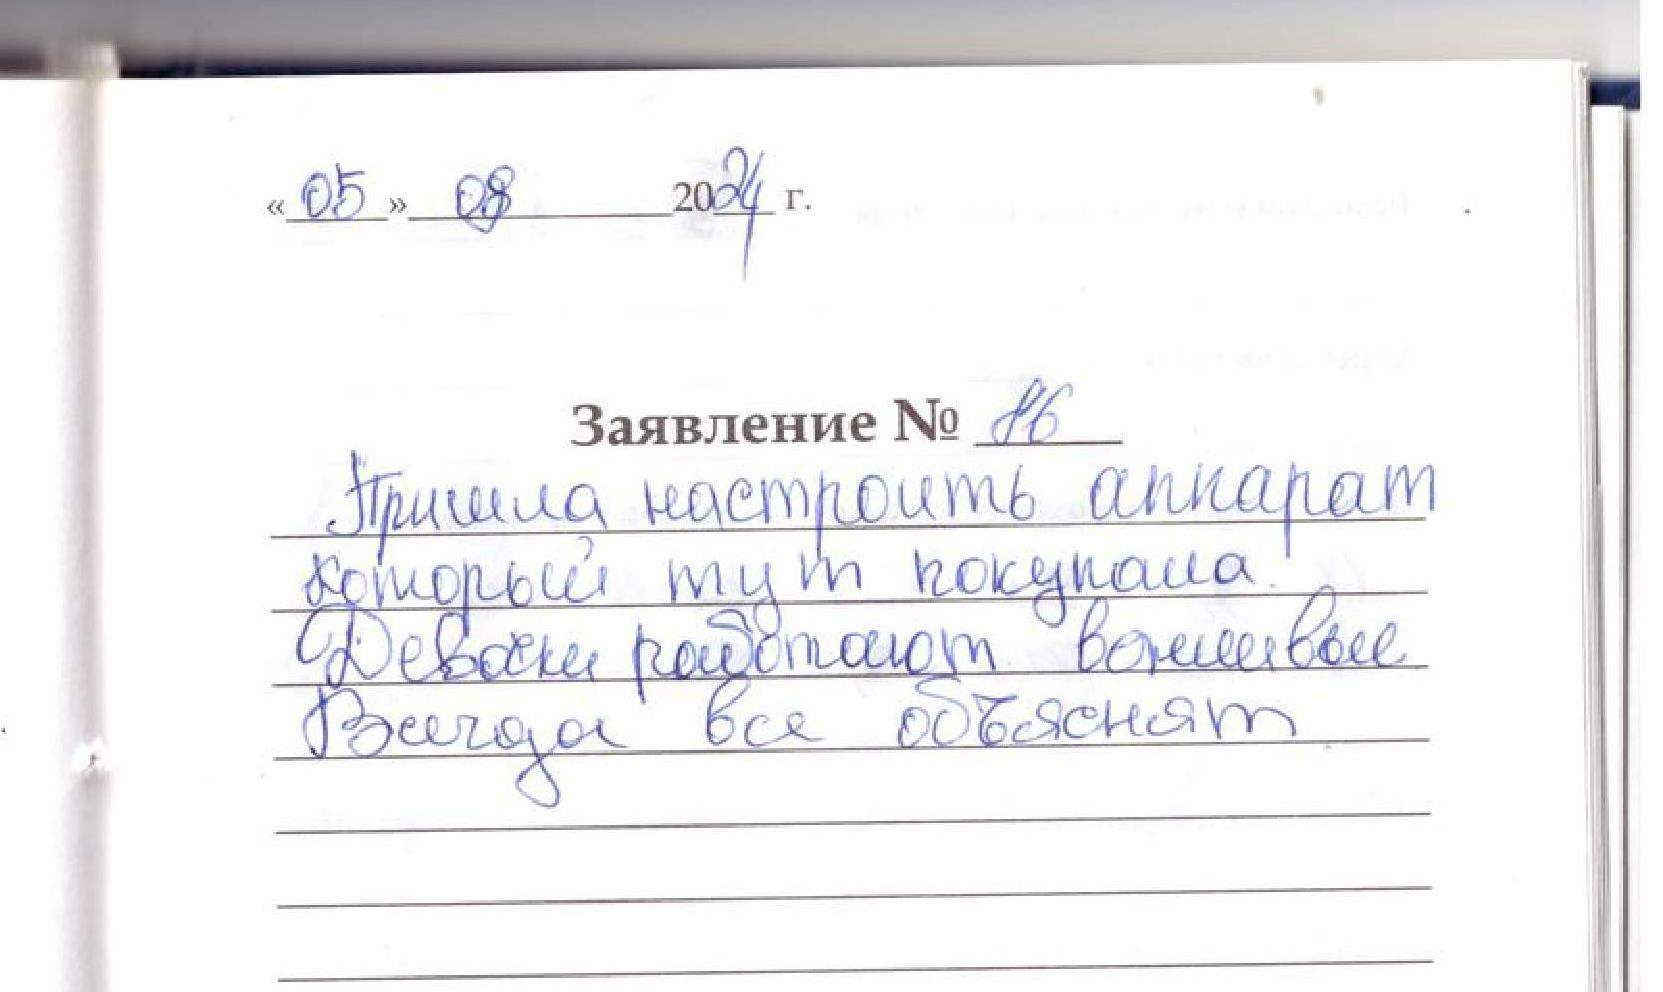 «05» 08 2024 г.
Заявление №
Пришла настроить аппарат
который тут покупала.
Девочки работают вежливые
Всегда все объяснят